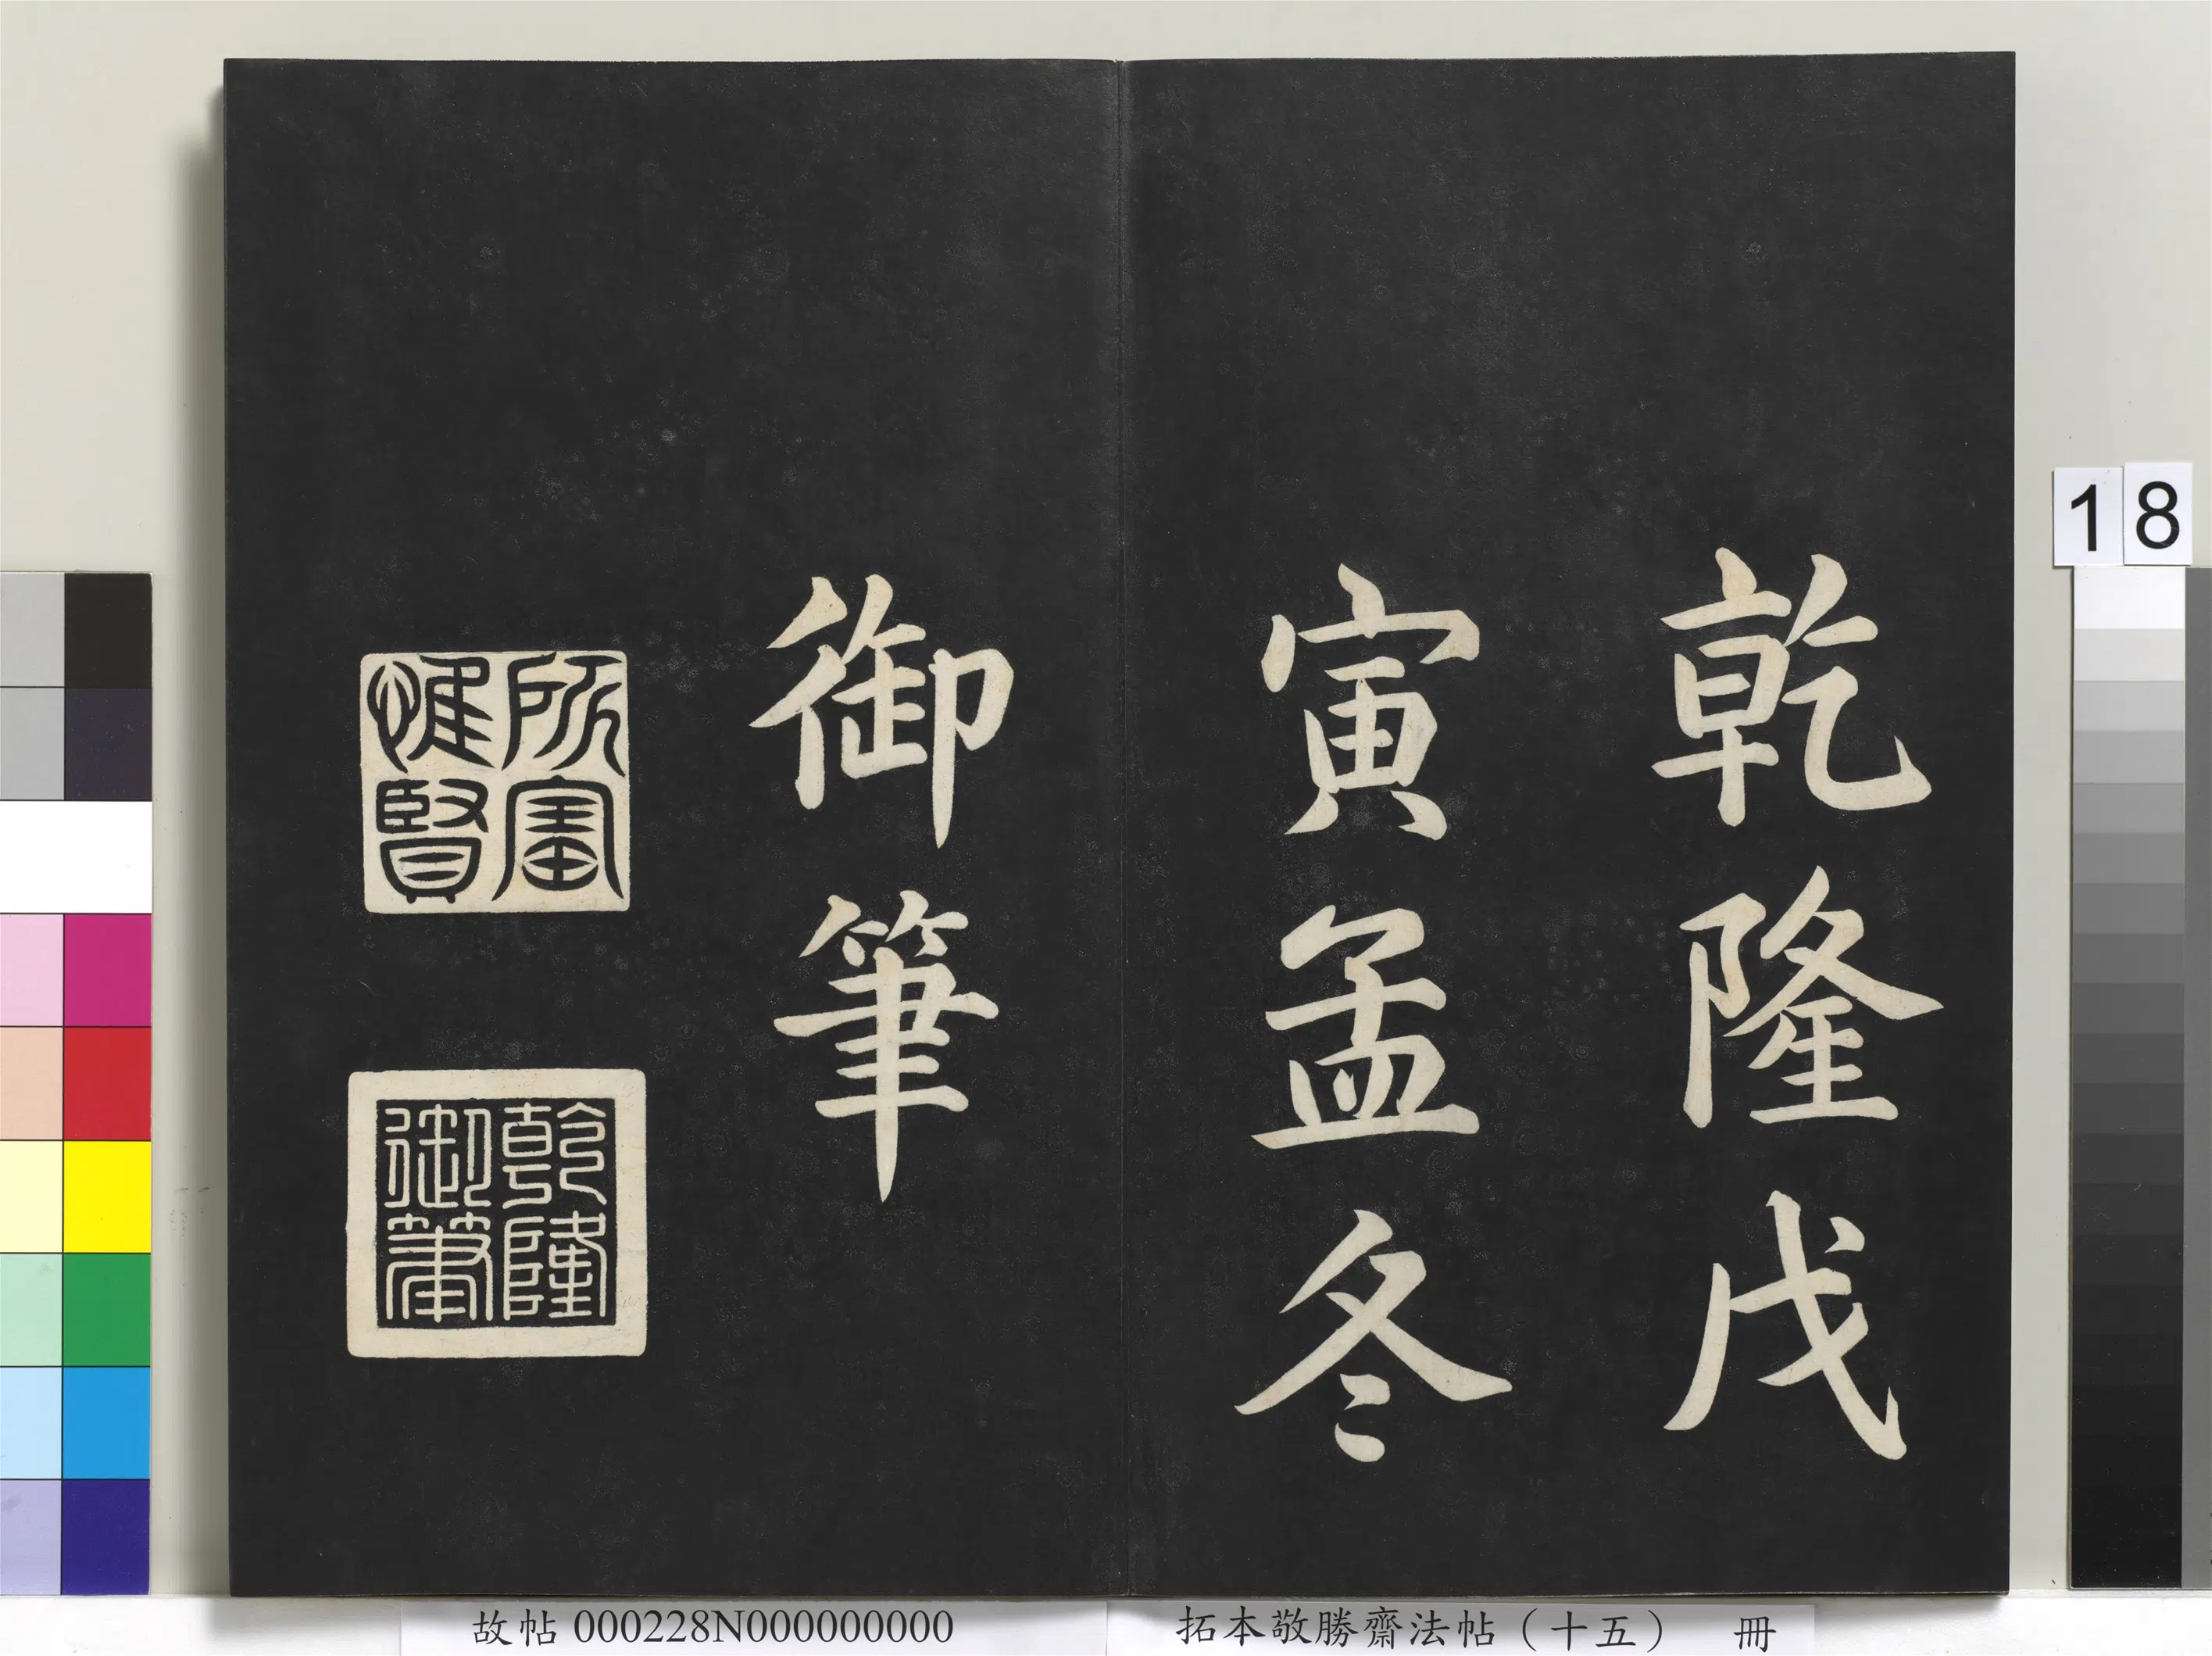 乾隆戊
寅孟冬
御筆
所寶
惟賢
乾隆
御筆
18
故帖 000228N000000000
拓本敬勝齋法帖（十五） 冊